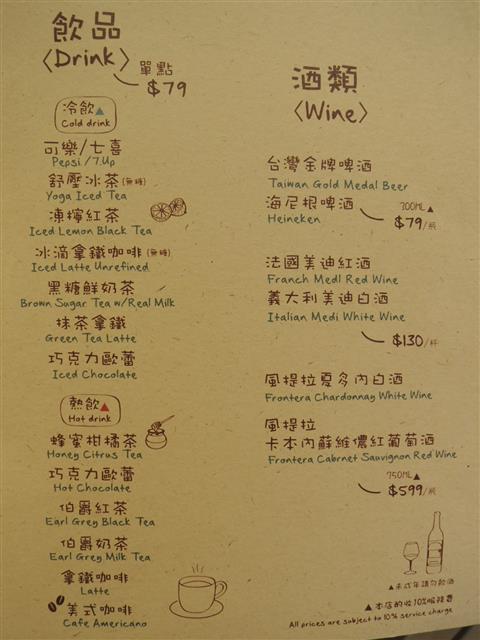 飲品
〈Drink〉
單點
$79
冷飲▲
Cold drink
可樂/七喜
Pepsi / 7.Up
舒壓冰茶(無糖)
Yoga Iced Tea
凍檸紅茶
Iced Lemon Black Tea
冰滴拿鐵咖啡(無糖)
Iced Latte Unrefined
黑糖鮮奶茶
Brown Sugar Tea w/Real Milk
抹茶拿鐵
Green Tea Latte
巧克力歐蕾
Iced Chocolate
熱飲▲
Hot drink
蜂蜜柑橘茶
Honey Citrus Tea
巧克力歐蕾
Hot Chocolate
伯爵紅茶
Earl Grey Black Tea
伯爵奶茶
Earl Grey Milk Tea
拿鐵咖啡
Latte
美式咖啡
Cafe Americano
酒類
〈Wine〉
台灣金牌啤酒
Taiwan Gold Medal Beer
海尼根啤酒
Heineken
300ML▲
$79/瓶
法國美迪紅酒
Franch Medl Red Wine
義大利美迪白酒
Italian Medi White Wine
$130/杯
風提拉夏多內白酒
Frontera Chardonnay White Wine
風提拉
卡本內蘇維儂紅葡萄酒
Frontera Cabrnet Sauvignon Red Wine
750ML▲
$599/瓶
▲未成年請勿飲酒
▲本店酌收10%服務費
All prices are subject to 10% service charge